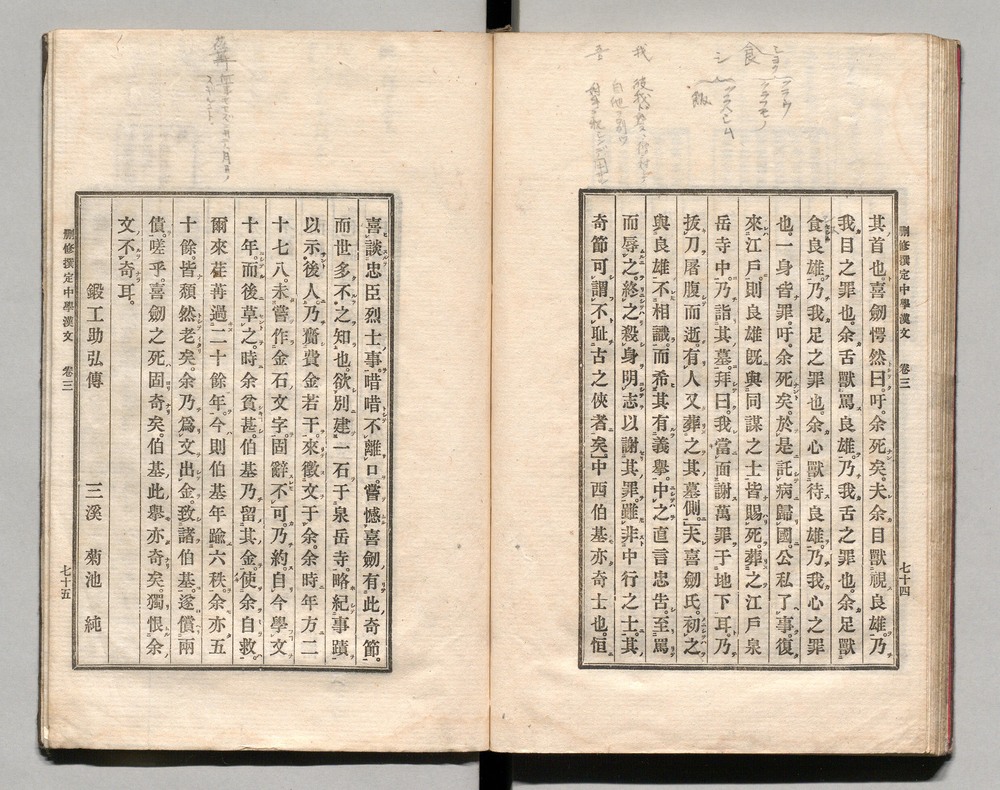 刪修撰定中學漢文　卷三
七十四
其首也。喜劒愕然曰。吁。余死矣。夫余目獸視良雄。乃
我目之罪也。余舌獸罵良雄。乃我舌之罪也。余足獸
食良雄。乃我足之罪也。余心獸待良雄。乃我心之罪
也。一身皆罪。吁。余死矣。於是託病歸國。公私了事。復
來江戶。則良雄旣與同謀之士皆賜死。葬之江戶泉
岳寺中。乃詣其墓。拜曰。我當面謝萬罪于地下耳。乃
拔刀屠腹而逝。有人又葬之其墓側。夫喜劒氏。初之
與良雄不相識。而希其有義擧。中之直言忠吿。至罵
而辱之。終之殺身明志以謝其罪。雖非中行之士。其
奇節可謂不耻古之俠者矣。中西伯基亦奇士也。恒
喜談忠臣烈士事。唶唶不離口。嘗憾喜劒有此奇節。
而世多不之知也。欲別建一石于泉岳寺。略紀事蹟
以示後人。乃齎費金若干。來徵文于余。余時年方二
十七八。未嘗作金石文字。固辭不可。乃約自今學文
十年。而後草之。時余貧甚。伯基乃留其金。使余自救。
爾來荏苒過二十餘年。今則伯基年踰六秩。余亦五
十餘。皆頹然老矣。余乃爲文出金。致諸伯基。遂償兩
債。嗟乎喜劒之死固奇矣。伯基此擧亦奇矣。獨恨余
文不奇耳。
鍛工助弘傳　三溪　菊池　純
刪修撰定中學漢文　卷三
七十五
食
シ
飯
我
吾